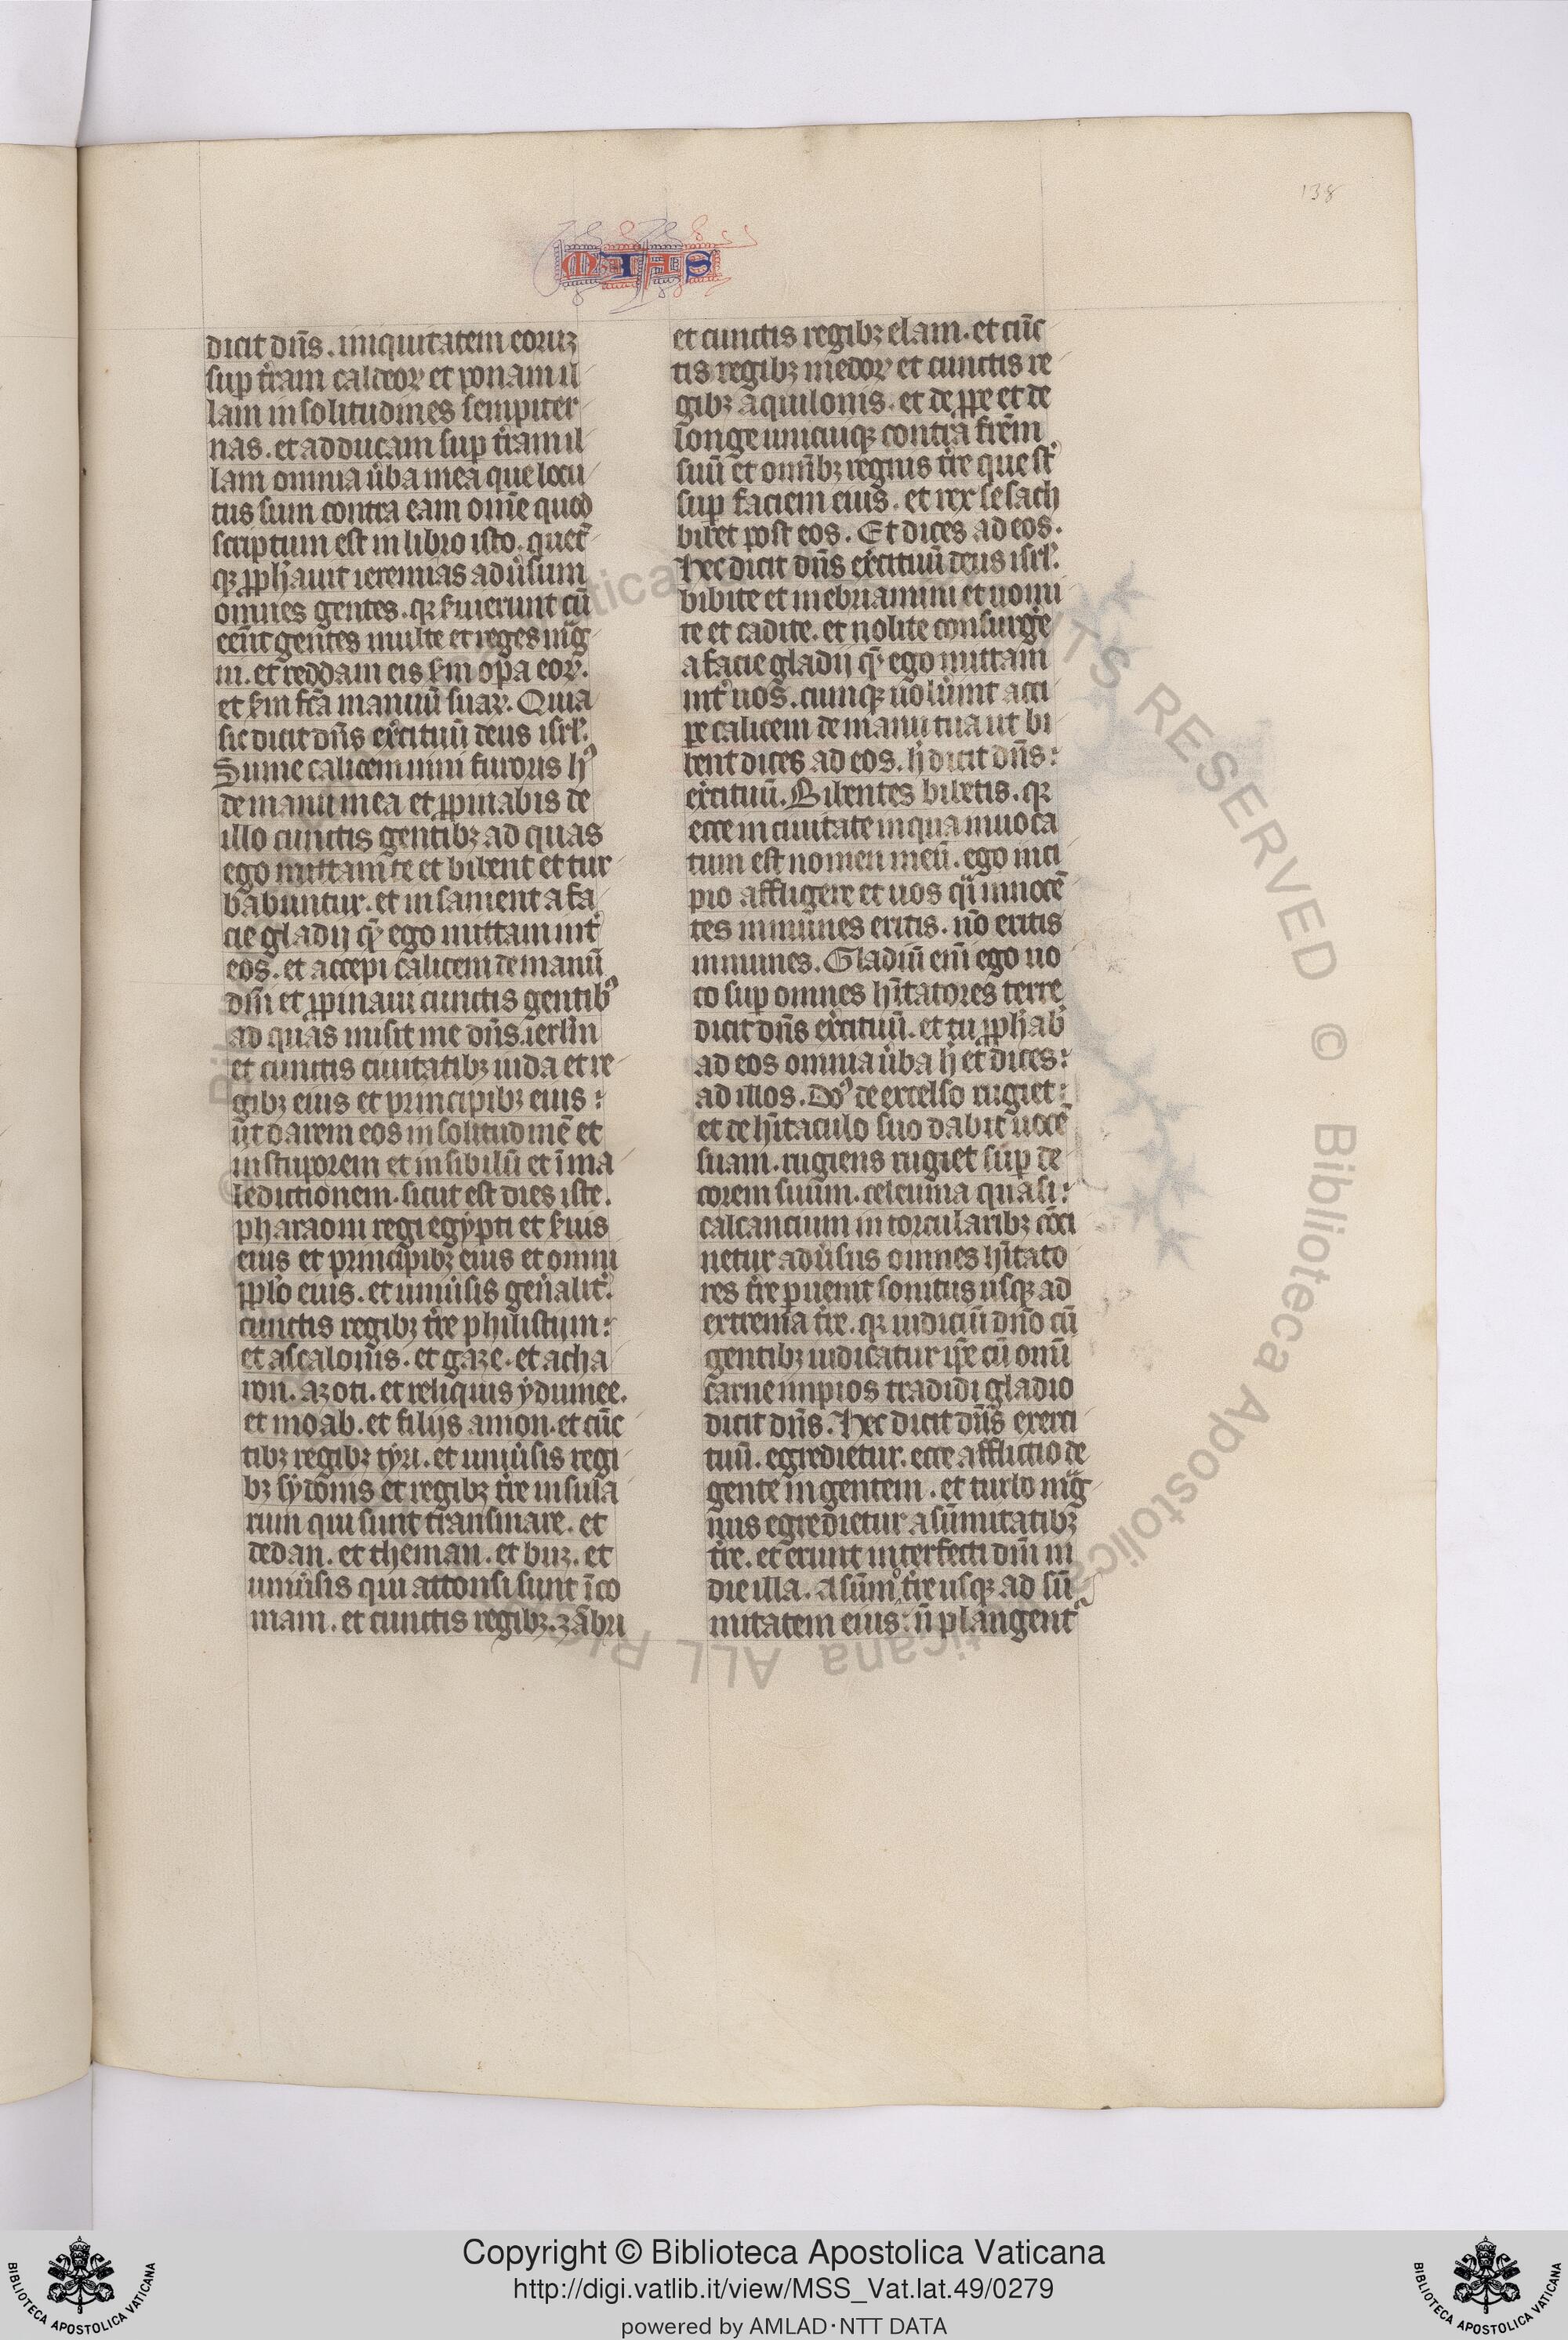 138
MIAS
dicit dñs. iniquitatem eoruz
sup t̾ram caldeoꝝ et ponam il
lam in solitudines sempiter
nas. et adducam sup t̾ram il
lam omnia u̾ba mea que locu
tus sum contra eam om̄e quod
scriptum est in libro isto. quec̄
qꝫ ꝓph̾auit ieremias adu̾sum
omnes gentes. qꝛ s̾uierunt cū
ee̾nt gentes multe et reges mag̾
ni. et reddam eis s̾m oꝑa eoꝝ.
et s̾m fc̄a manuū suaꝝ. Quia
sic dicit dñs exc̾ituū deus isrl̾.
Sume calicem uini furoris hꝰ
de manu mea et ꝓpinabis de
illo cunctis gentibꝫ ad quas
ego mittam te et bibent et tur
babuntur. et insanient a fa
cie gladij qͣ̄ ego mittam int̾
eos. et accepi calicem de manū
dñi et ꝓpinaui cunctis gentibꝰ
ad quas misit me dñs. ierl̾m
et cunctis ciuitatibꝫ iuda et re
gibꝫ eius et principibꝫ eius:
ut darem eos in solitudinē et
in stuporem et in sibilū et ī ma
ledictionem. sicut est dies iste.
pharaoni regi egypti et s̾uis
eius et principibꝫ eius et omni
pplo eius. et uniu̾sis gen̾alit̾.
cunctis regibꝫ t̾re philistiim:
et ascalonis. et gaze. et acha
ron. azoti. et reliquis ydumee.
et moab. et filijs amon. et cūc
tibꝫ regibꝫ tyri. et uniu̾sis regi
bꝫ sydonis et regibꝫ t̾re insula
rum qui sunt trans mare. et
dedan. et theman. et buz. et
uniu̾sis qui attonsi sunt ī co
mam. et cunctis regibꝫ. zābri
et cunctis regibꝫ elam. et cūc
tis regibꝫ medoꝝ et cunctis re
gibꝫ aquilonis. et de ꝓpe et de
longe unicuiqꝫ contra fr̄em
suū et omībꝫ regnis t̾re que st̄
sup faciem eius. et rex sesach
bibet post eos. Et dices ad eos.
Hec dicit dñs exc̾ituū deus isrl̾.
bibite et inebriamini et uomi
te et cadite. et nolite consurge̾
a facie gladij qͣ̄ ego mittam
int̾ uos. cumqꝫ uolu̾int acci
pe calicem de manu tua ut bi
bent dices ad eos. h̾ dicit dñs:
exc̾ituū. Bibentes bibetis. qꝛ
ecce in ciuitate in qua inuoca
tum est nomen meū. ego inci
pio affligere et uos qͣi innocē
tes inmunes eritis. nō eritis
inmunes. Gladiū eni̅ ego uo
co sup omnes hītatores terre
dicit dñs exc̾ituū. et tu ꝓph̾ab̾
ad eos omnia u̾ba h̾ et dices:
ad illos. Dꝰ de excelso rugiet:
et de hītaculo suo dabit uocē
suam. rugiens rugiet sup de
corem suum. celeuma quasi:
calcantium in torcularibꝫ cōci
netur adu̾sus omnes hītato
res t̾re ꝑuenit sonitus usqꝫ ad
extrema t̾re. qꝛ iudiciū dn̄o cū
gentibꝫ iudicatur ip̄e cū omī
carne impios tradidi gladio
dicit dñs. Hec dicit dñs exerci
tuū. egredietur. ecce afflictio de
gente in gentem. et turbo mag̾
nus egredietur a sūmitatibꝫ
t̾re. et erunt interfecti dñi in
die illa. a sūmo t̾re usqꝫ ad sū
mitatem eius. ñ plangent᷑
Copyright © Biblioteca Apostolica Vaticana
http://digi.vatlib.it/view/MSS_Vat.lat.49/0279
powered by AMLAD·NTT DATA
BIBLIOTECA APOSTOLICA VATICANA
BIBLIOTECA APOSTOLICA VATICANA